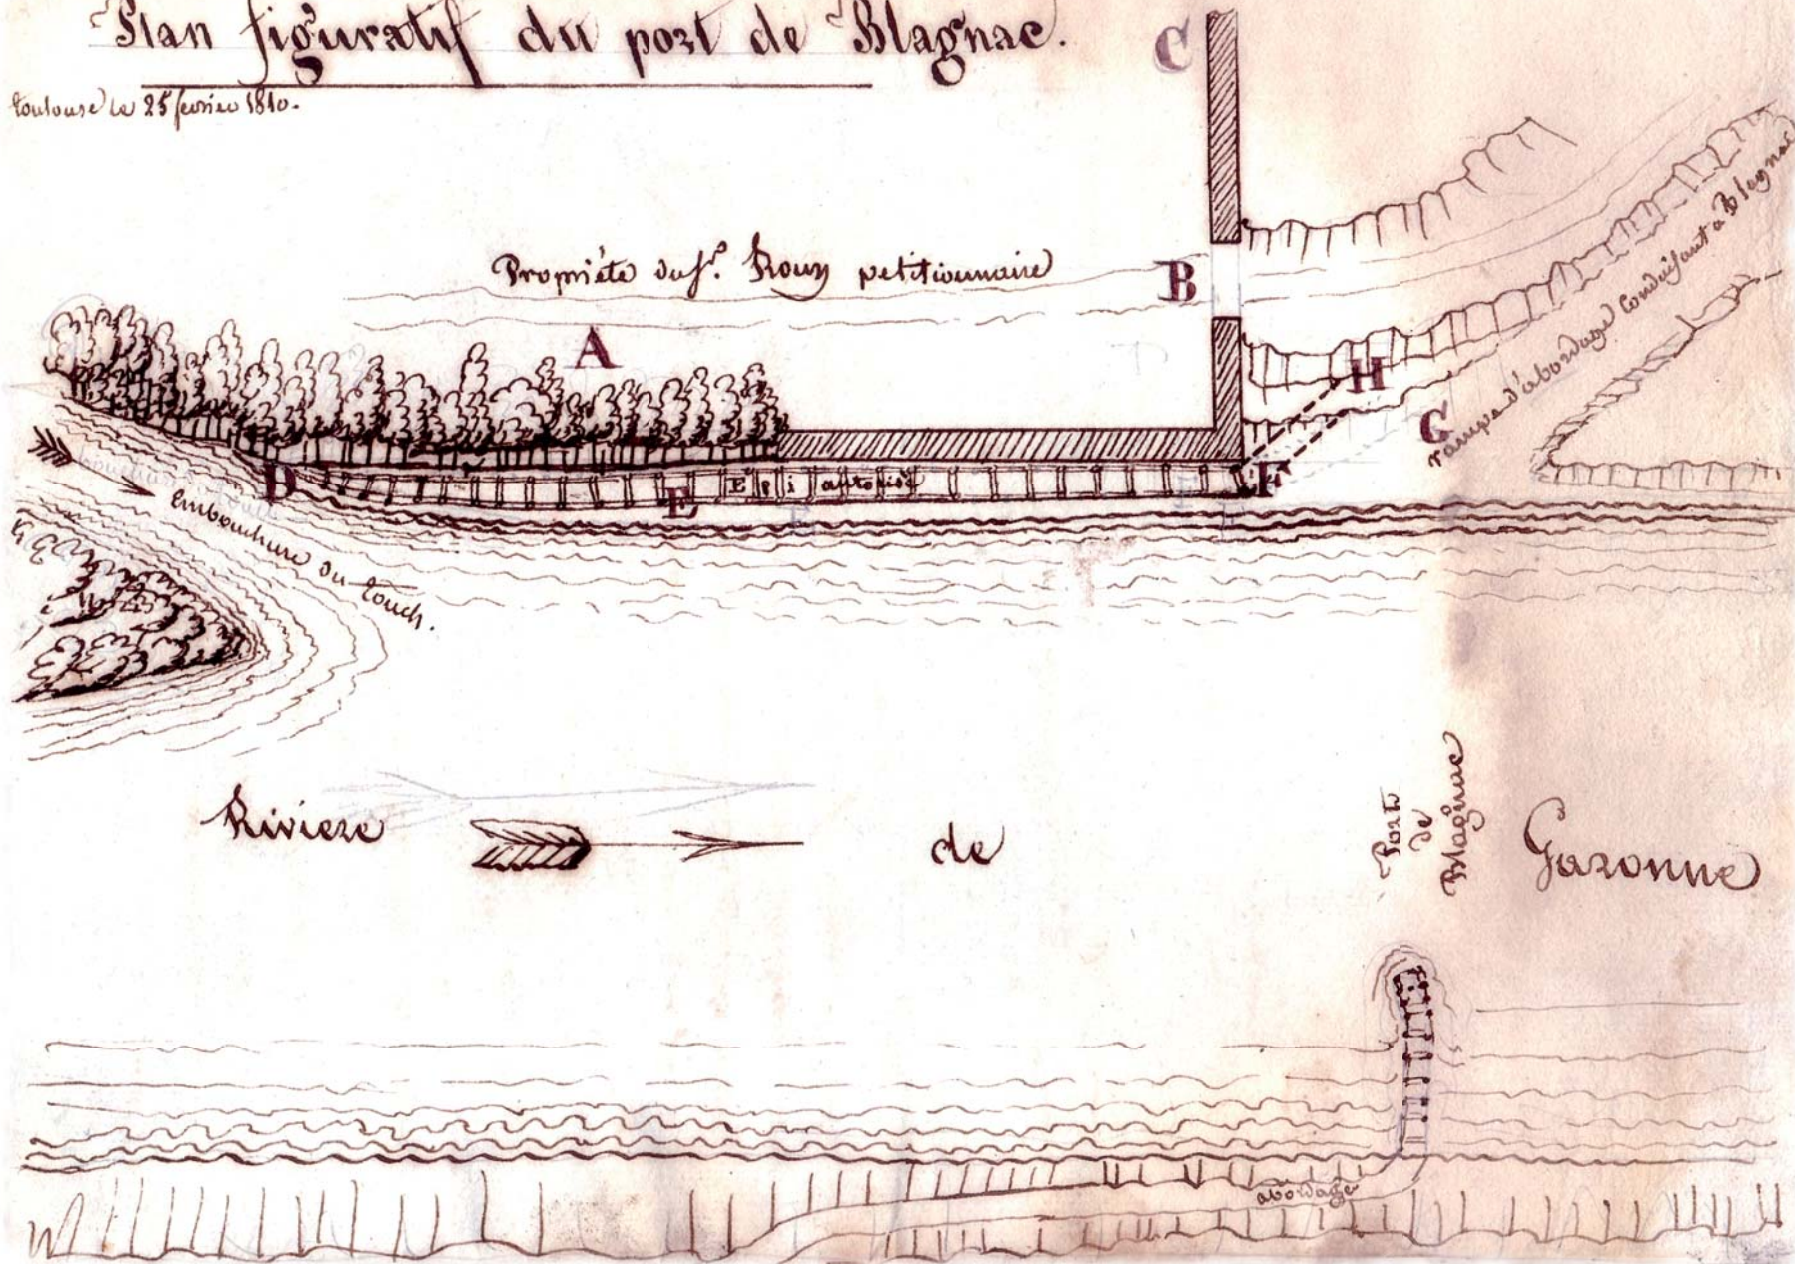 Plan figuratif du port de Blagnac.
Toulouse le 25 fevrier 1810.
C
Propriéte du Sr. Roux petitionnaire
B
A
H
G
rampe d'abordage conduisant a Blagnac
D
E
Epi autorisé
F
Embouchure du touch.
Riviere de Garonne
Port
de
Blagnac
abordage